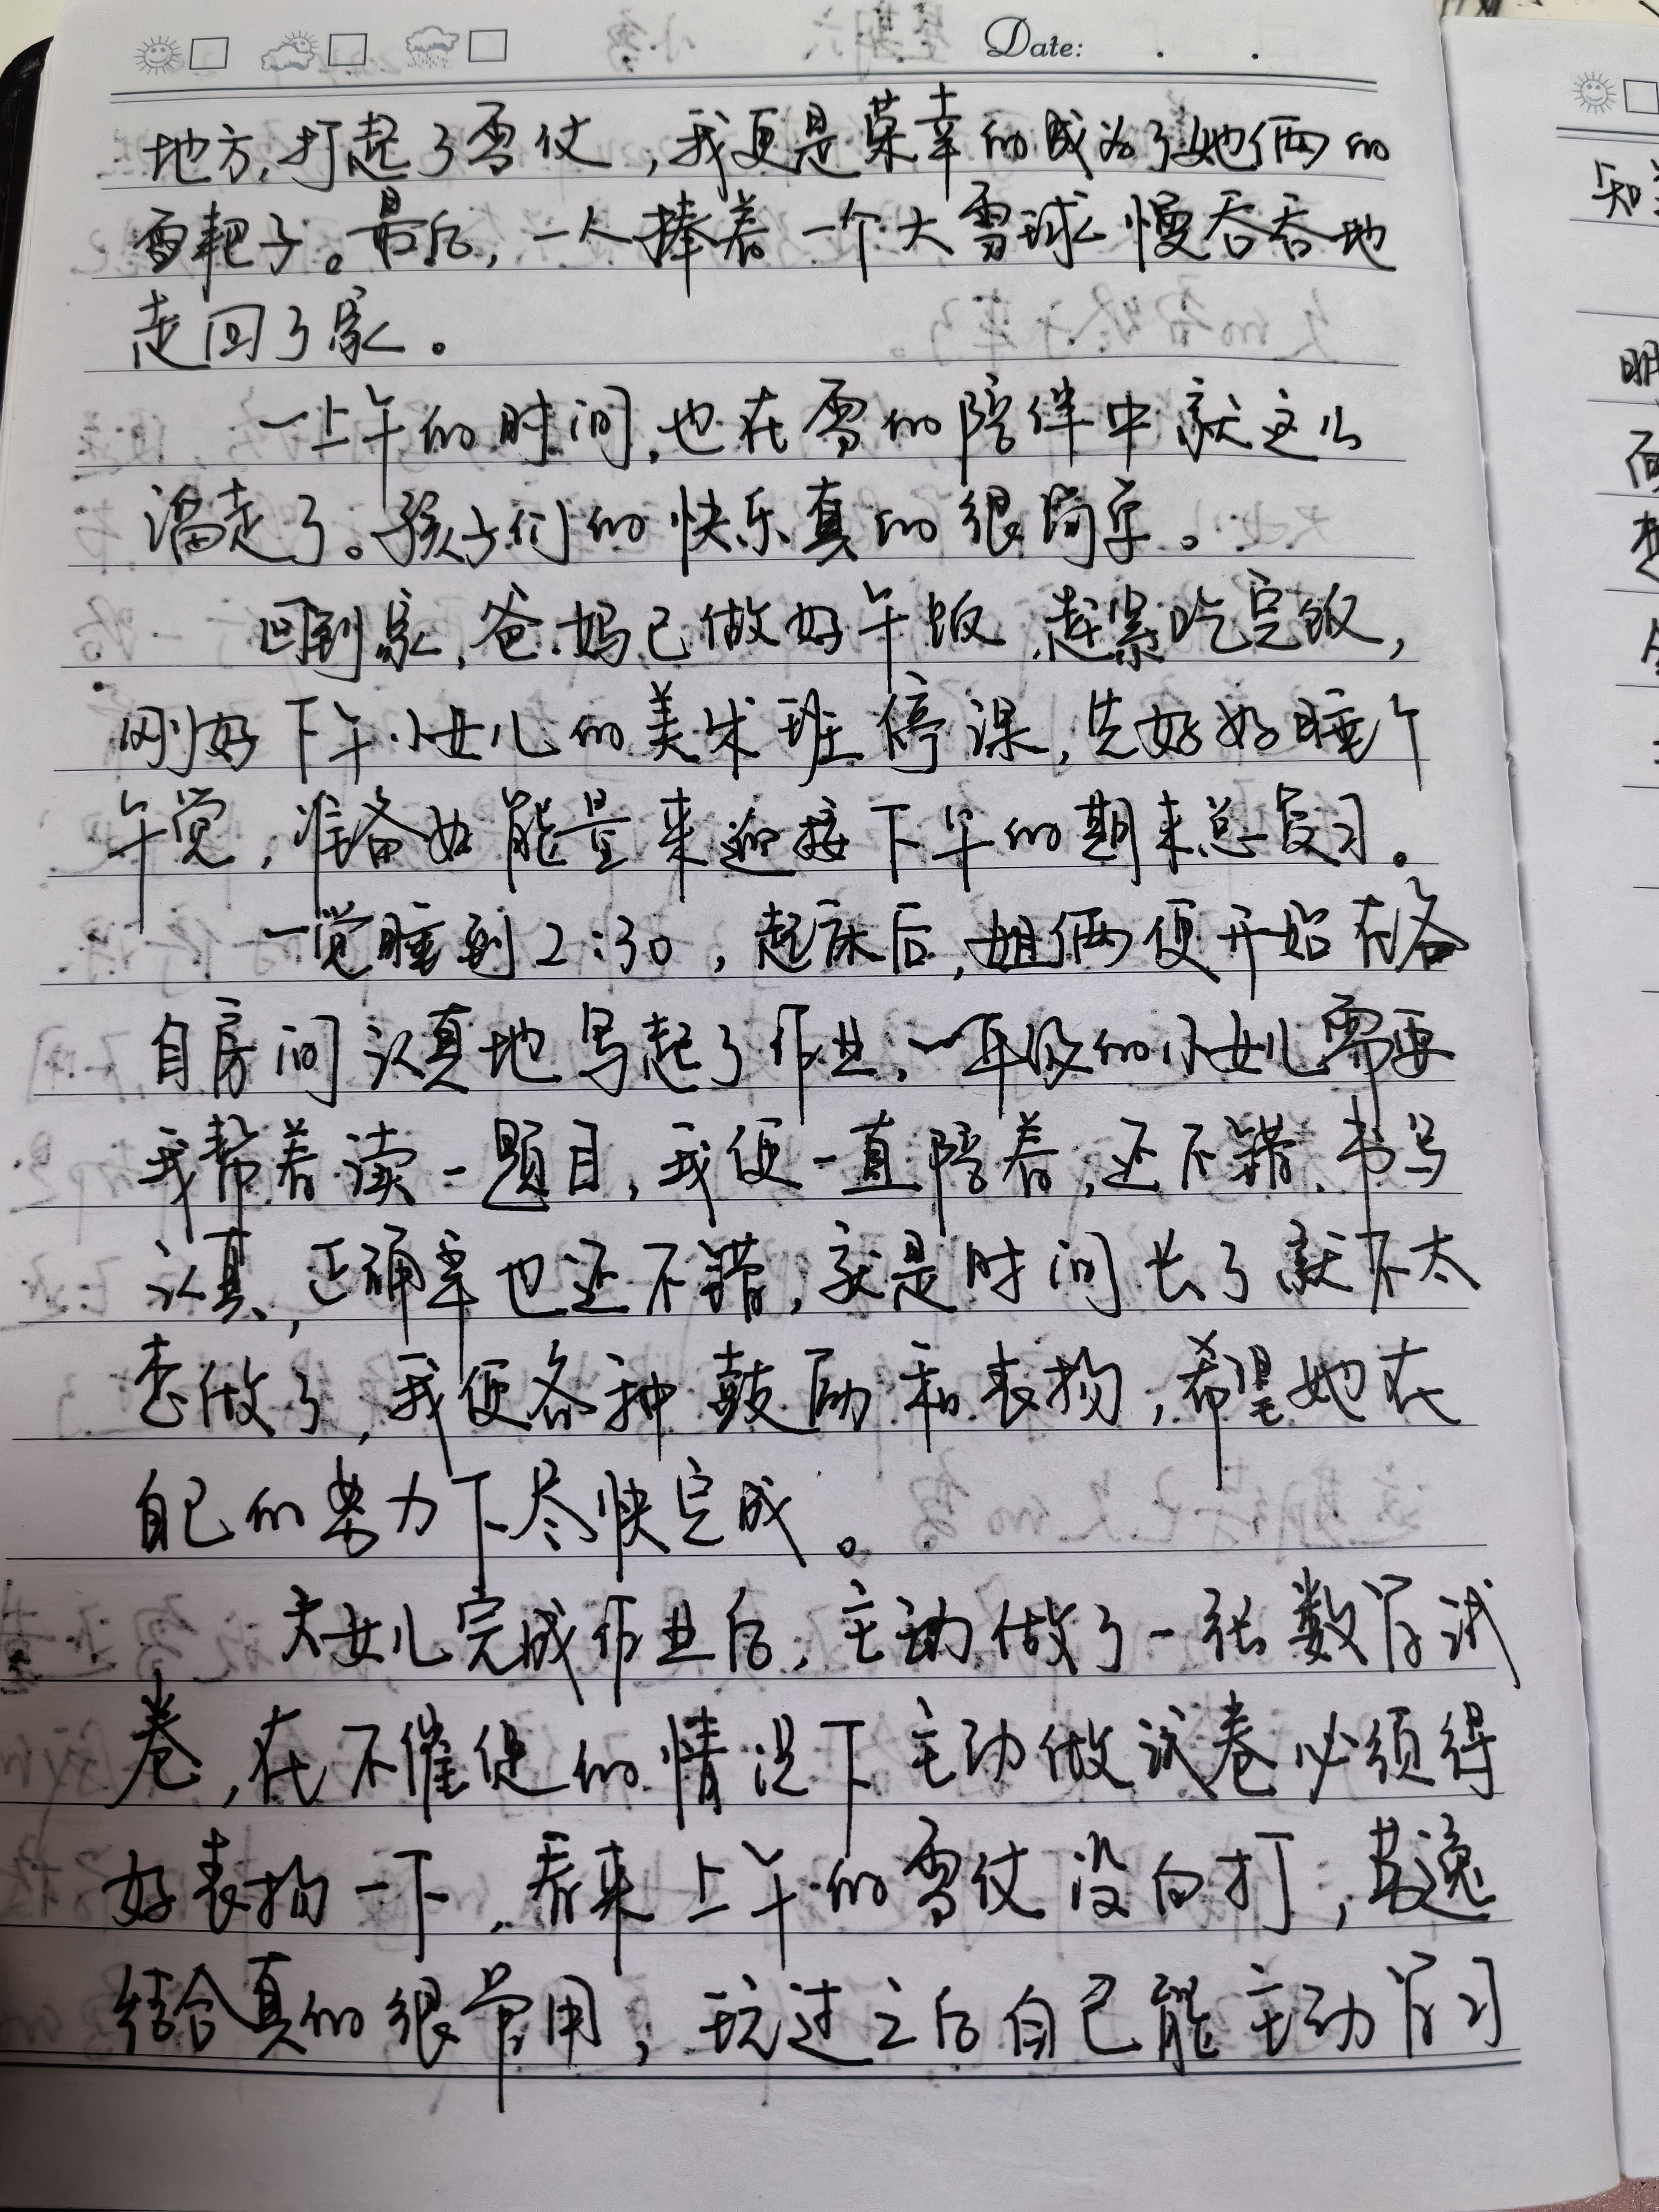 Date: . .
地方,打起了雪仗,我更是荣幸的成为了她俩的
雪耙子。最后,一人捧着一个大雪球慢吞吞地
走回了家。
一上午的时间,也在雪的陪伴中就这么
溜走了。孩子们的快乐真的很简单。
回到家,爸妈已做好午饭,赶紧吃完饭,
刚好下午小女儿的美术班停课,先好好睡个
午觉,准备好能量来迎接下午的期末总复习。
一觉睡到2:30,起床后,姐俩便开始在各
自房间认真地写起了作业,一年级的小女儿需要
我帮着读一题目,我便一直陪着,还不错,书写
认真,正确率也还不错,就是时间长了就不太
想做了,我便各种鼓励和表扬,希望她在
自己的努力下尽快完成。
大女儿完成作业后,主动做了一张数学试
卷,在不催促的情况下主动做试卷必须得
好表扬一下,看来上午的雪仗没白打,劳逸
结合真的很管用,玩过之后自己能主动学习